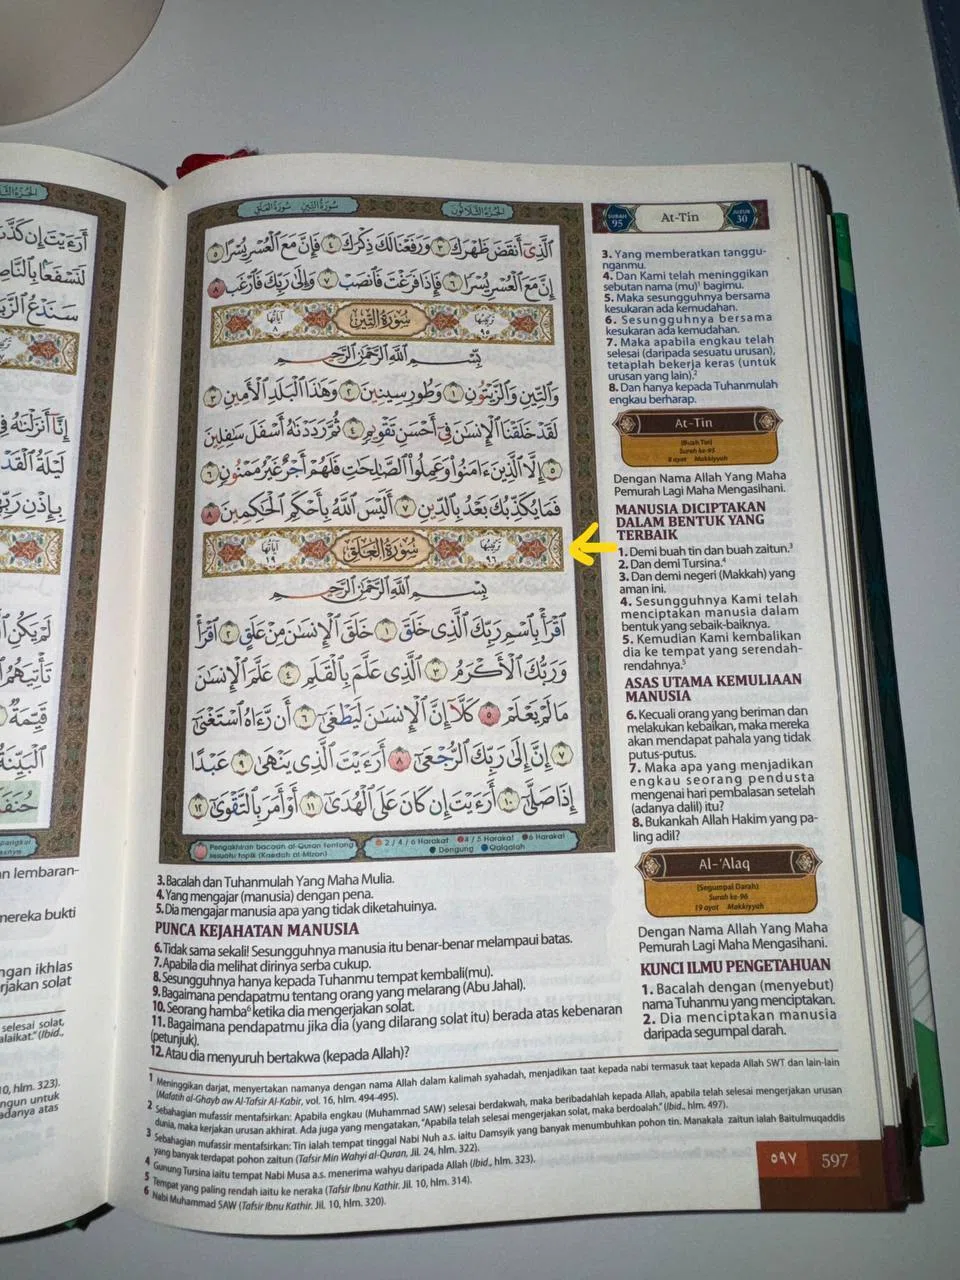 سُورَةُ التِّينِ سُورَةُ العَلَقِ
الجُزْءُ الثَّلَاثُونَ
ٱلَّذِىٓ أَنقَضَ ظَهْرَكَ ٣ وَرَفَعْنَا لَكَ ذِكْرَكَ ٤ فَإِنَّ مَعَ ٱلْعُسْرِ يُسْرًا ٥
إِنَّ مَعَ ٱلْعُسْرِ يُسْرًا ٦ فَإِذَا فَرَغْتَ فَٱنصَبْ ٧ وَإِلَىٰ رَبِّكَ فَٱرْغَب ٨
تَرْتِيبُهَا ٩٥ سُورَةُ التِّينِ آيَاتُهَا ٨
بِسْمِ ٱللَّهِ ٱلرَّحْمَٰنِ ٱلرَّحِيمِ
وَٱلتِّينِ وَٱلزَّيْتُونِ ١ وَطُورِ سِينِينَ ٢ وَهَٰذَا ٱلْبَلَدِ ٱلْأَمِينِ ٣
لَقَدْ خَلَقْنَا ٱلْإِنسَٰنَ فِىٓ أَحْسَنِ تَقْوِيمٍ ٤ ثُمَّ رَدَدْنَٰهُ أَسْفَلَ سَٰفِلِينَ
٥ إِلَّا ٱلَّذِينَ ءَامَنُوا۟ وَعَمِلُوا۟ ٱلصَّٰلِحَٰتِ فَلَهُمْ أَجْرٌ غَيْرُ مَمْنُونٍ ٦
فَمَا يُكَذِّبُكَ بَعْدُ بِٱلدِّينِ ٧ أَلَيْسَ ٱللَّهُ بِأَحْكَمِ ٱلْحَٰكِمِينَ ٨
تَرْتِيبُهَا ٩٦ سُورَةُ العَلَقِ آيَاتُهَا ١٩
بِسْمِ ٱللَّهِ ٱلرَّحْمَٰنِ ٱلرَّحِيمِ
ٱقْرَأْ بِٱسْمِ رَبِّكَ ٱلَّذِى خَلَقَ ١ خَلَقَ ٱلْإِنسَٰنَ مِنْ عَلَقٍ ٢ ٱقْرَأْ
وَرَبُّكَ ٱلْأَكْرَمُ ٣ ٱلَّذِى عَلَّمَ بِٱلْقَلَمِ ٤ عَلَّمَ ٱلْإِنسَٰنَ
مَا لَمْ يَعْلَمْ ٥ كَلَّآ إِنَّ ٱلْإِنسَٰنَ لَيَطْغَىٰٓ ٦ أَن رَّءَاهُ ٱسْتَغْنَىٰٓ
٧ إِنَّ إِلَىٰ رَبِّكَ ٱلرُّجْعَىٰٓ ٨ أَرَءَيْتَ ٱلَّذِى يَنْهَىٰ ٩ عَبْدًا
إِذَا صَلَّىٰٓ ١٠ أَرَءَيْتَ إِن كَانَ عَلَى ٱلْهُدَىٰٓ ١١ أَوْ أَمَرَ بِٱلتَّقْوَىٰٓ ١٢
Pengakhiran bacaan al-Quran tentang
sesuatu topik (Kaedah al-Mizan)
2 / 4 / 6 Harakat 4 / 5 Harakat 6 Harakat
Dengung Qalqalah
SURAH 95 At-Tin JUZUK 30
3. Yang memberatkan tanggu-
nganmu.
4. Dan Kami telah meninggikan
sebutan nama (mu)¹ bagimu.
5. Maka sesungguhnya bersama
kesukaran ada kemudahan.
6. Sesungguhnya bersama
kesukaran ada kemudahan.
7. Maka apabila engkau telah
selesai (daripada sesuatu urusan),
tetaplah bekerja keras (untuk
urusan yang lain).²
8. Dan hanya kepada Tuhanmulah
engkau berharap.
At-Tin
(Buah Tin)
Surah ke-95
8 ayat Makkiyyah
Dengan Nama Allah Yang Maha
Pemurah Lagi Maha Mengasihani.
MANUSIA DICIPTAKAN
DALAM BENTUK YANG
TERBAIK
1. Demi buah tin dan buah zaitun.³
2. Dan demi Tursina.⁴
3. Dan demi negeri (Makkah) yang
aman ini.
4. Sesungguhnya Kami telah
menciptakan manusia dalam
bentuk yang sebaik-baiknya.
5. Kemudian Kami kembalikan
dia ke tempat yang serendah-
rendahnya.⁵
ASAS UTAMA KEMULIAAN
MANUSIA
6. Kecuali orang yang beriman dan
melakukan kebaikan, maka mereka
akan mendapat pahala yang tidak
putus-putus.
7. Maka apa yang menjadikan
engkau seorang pendusta
mengenai hari pembalasan setelah
(adanya dalil) itu?
8. Bukankah Allah Hakim yang pa-
ling adil?
Al-‘Alaq
(Segumpal Darah)
Surah ke-96
19 ayat Makkiyyah
Dengan Nama Allah Yang Maha
Pemurah Lagi Maha Mengasihani.
KUNCI ILMU PENGETAHUAN
1. Bacalah dengan (menyebut)
nama Tuhanmu yang menciptakan.
2. Dia menciptakan manusia
daripada segumpal darah.
3. Bacalah dan Tuhanmulah Yang Maha Mulia.
4. Yang mengajar (manusia) dengan pena.
5. Dia mengajar manusia apa yang tidak diketahuinya.
PUNCA KEJAHATAN MANUSIA
6. Tidak sama sekali! Sesungguhnya manusia itu benar-benar melampaui batas.
7. Apabila dia melihat dirinya serba cukup.
8. Sesungguhnya hanya kepada Tuhanmu tempat kembali(mu).
9. Bagaimana pendapatmu tentang orang yang melarang (Abu Jahal).
10. Seorang hamba⁶ ketika dia mengerjakan solat.
11. Bagaimana pendapatmu jika dia (yang dilarang solat itu) berada atas kebenaran
(petunjuk).
12. Atau dia menyuruh bertakwa (kepada Allah)?
1 Meninggikan darjat, menyertakan namanya dengan nama Allah dalam kalimah syahadah, menjadikan taat kepada nabi termasuk taat kepada Allah SWT dan lain-lain
(Mafatih al-Ghayb aw Al-Tafsir Al-Kabir, vol. 16, hlm. 494-495).
2 Sebahagian mufassir mentafsirkan: Apabila engkau (Muhammad SAW) selesai berdakwah, maka beribadahlah kepada Allah, apabila telah selesai mengerjakan urusan
dunia, maka kerjakan urusan akhirat. Ada juga yang mengatakan, “Apabila telah selesai mengerjakan solat, maka berdoalah.” (Ibid., hlm. 497).
3 Sebahagian mufassir mentafsirkan: Tin ialah tempat tinggal Nabi Nuh a.s. iaitu Damsyik yang banyak menumbuhkan pohon tin. Manakala zaitun ialah Baitulmuqaddis
yang banyak terdapat pohon zaitun (Tafsir Min Wahyi al-Quran, Jil. 24, hlm. 322).
4 Gunung Tursina iaitu tempat Nabi Musa a.s. menerima wahyu daripada Allah (Ibid., hlm. 323).
5 Tempat yang paling rendah iaitu ke neraka (Tafsir Ibnu Kathir. Jil. 10, hlm. 314).
6 Nabi Muhammad SAW (Tafsir Ibnu Kathir. Jil. 10, hlm. 320).
٥٩٧ 597